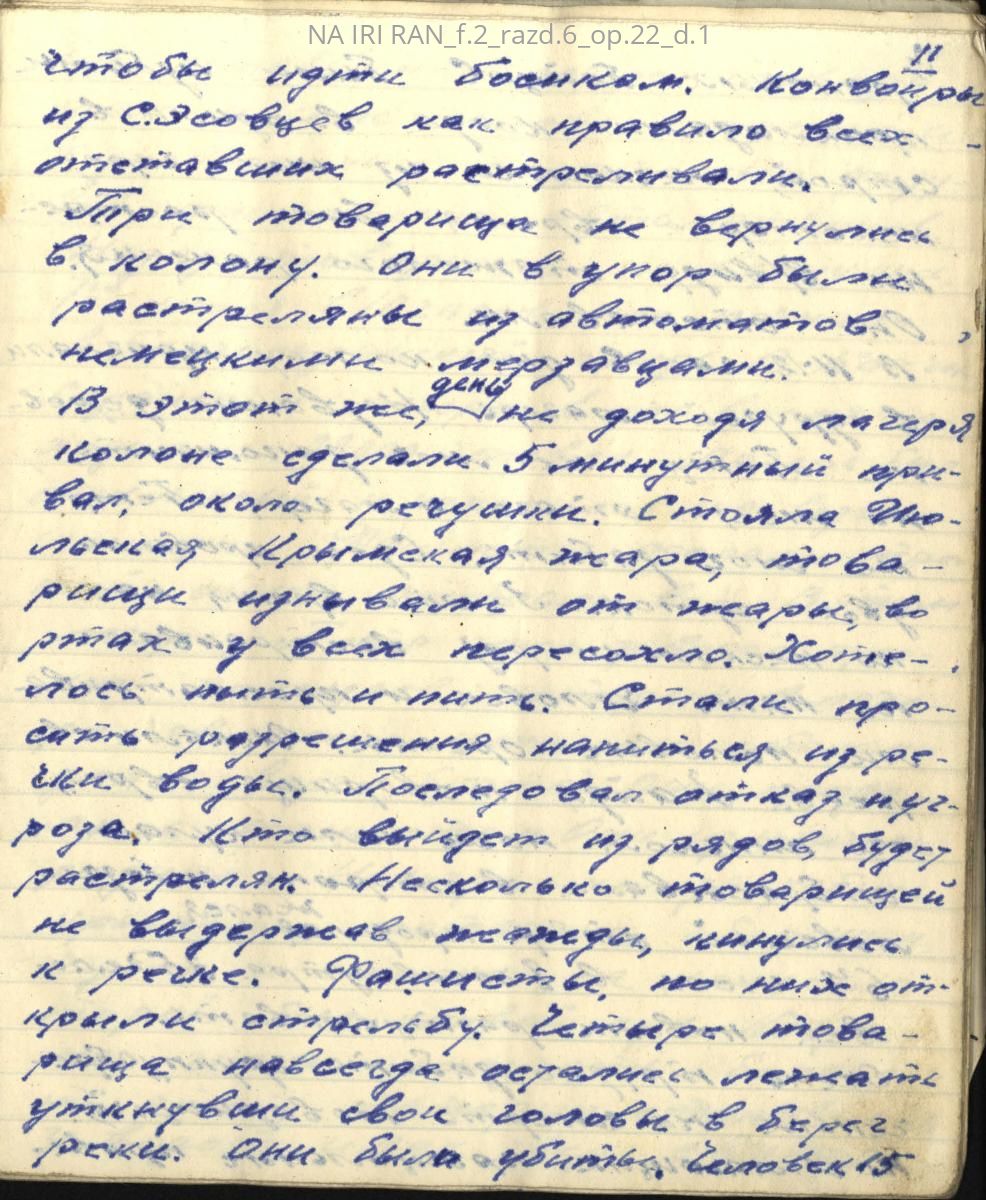 NA IRI RAN_f.2_razd.6_op.22_d.1
11
чтобы идти босиком. Конвоиры
из С.Эсовцев как правило всех
отставших растреливали.
Три товарища не вернулись
в колону. Они в упор были
растреляны из автоматов
немецкими мерзавцами.
день
В этот же, не доходя лагеря
колоне сделали 5 минутный при-
вал, около речушки. Стояла Ию-
льская Крымская жара, това-
рищи изнывали от жары, во
ртах у всех пересохло. Хоте-
лось пить и пить. Стали про-
сить разрешения напиться из ре-
чки воды. Последовал отказ и уг-
роза. Кто выйдет из рядов, будет
растрелян. Несколько товарищей
не выдержав жажды, кинулись
к речке. Фашисты, по ним от-
крыли стрельбу. Четыре това-
рища навсегда остались лежать
уткнувши свои головы в берег
реки. Они были убиты. Человек 15